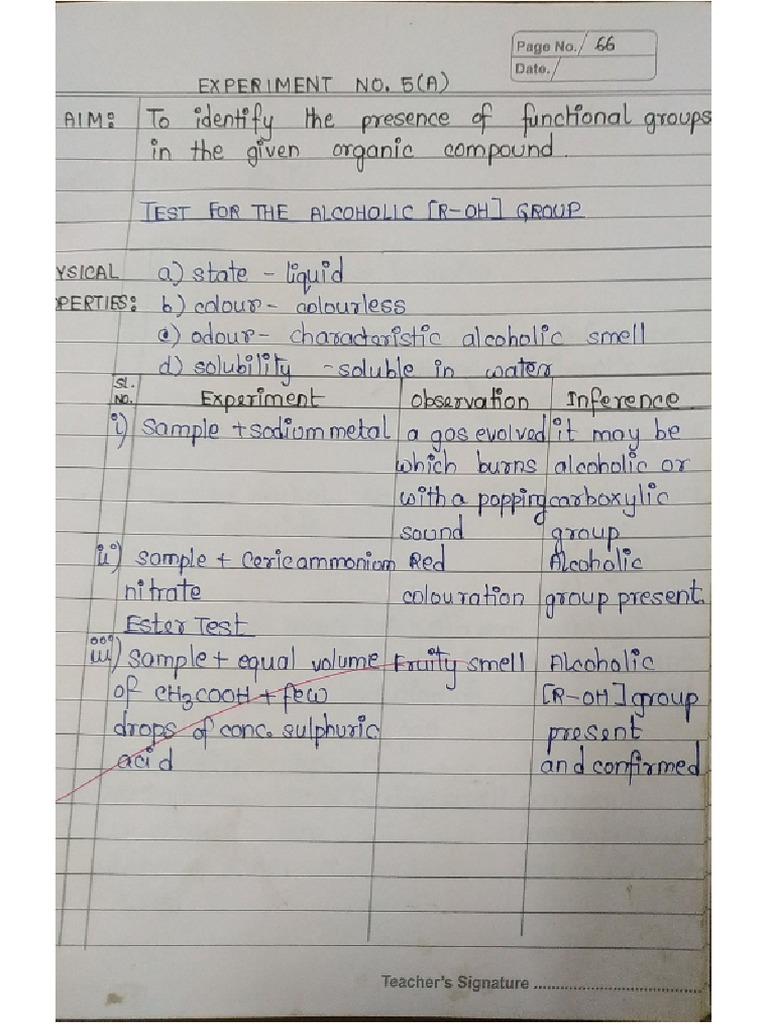 Page No. 66
Date.
EXPERIMENT NO. 5(A)
AIM: To identify the presence of functional groups
in the given organic compound.
TEST FOR THE ALCOHOLIC [R-OH] GROUP
YSICAL a) state - liquid
PERTIES: b) colour - colourless
c) odour - characteristic alcoholic smell
d) solubility - soluble in water
Sl. No. Experiment Observation Inference
i) Sample + sodium metal a gas evolved it may be
which burns alcoholic or
with a popping carboxylic
sound group
ii) sample + Ceric ammonium Red Alcoholic
nitrate colouration group present.
Ester Test
iii) sample + equal volume Fruity smell Alcoholic
of CH3COOH + few [R-OH] group
drops of conc. sulphuric present
acid and confirmed
Teacher's Signature